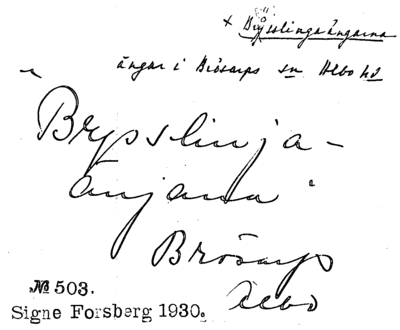 + Brysslingaängarna
ängar i Brösarps sn Albo hd
"Brysslinja-
änjana"
Brösarp
Albo
№ 503.
Signe Forsberg 1930.